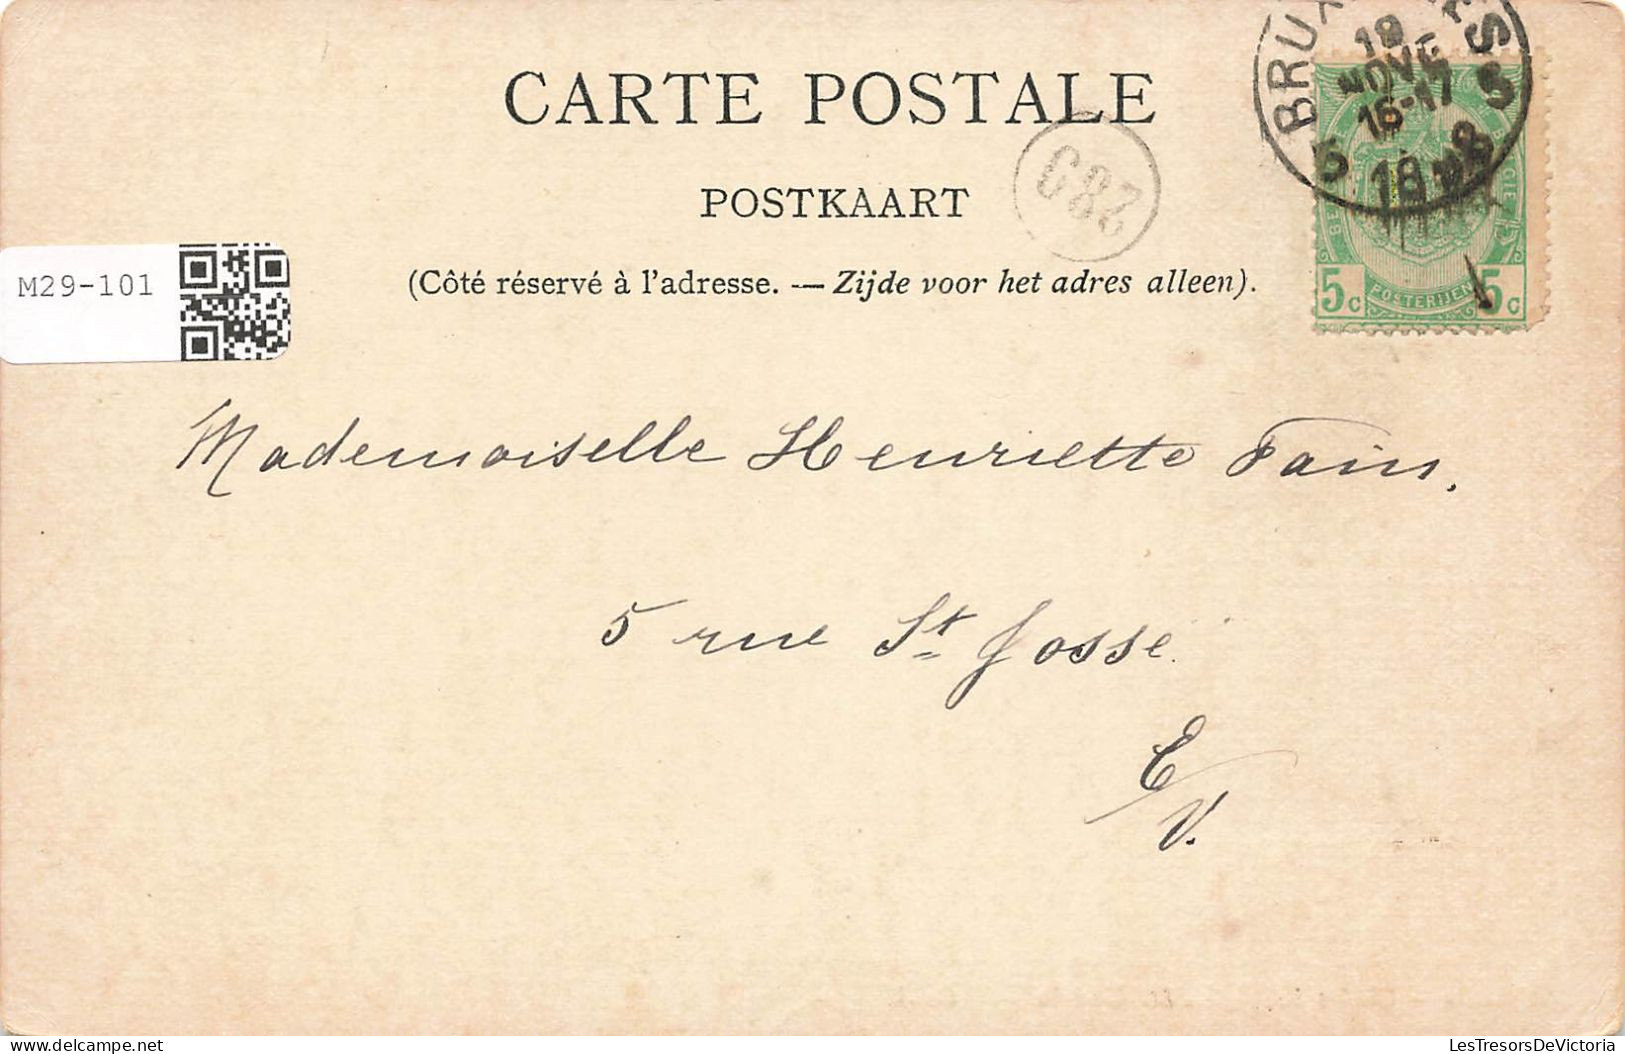 CARTE POSTALE
POSTKAART
(Côté réservé à l'adresse. — Zijde voor het adres alleen).
M29-101
19
NOVE
16-17
5 5
5c POSTERIJEN 5c
Mademoiselle Henriette Fain,
5 rue St Josse.
E/V.
delcampe.net
LesTresorsDeVictoria